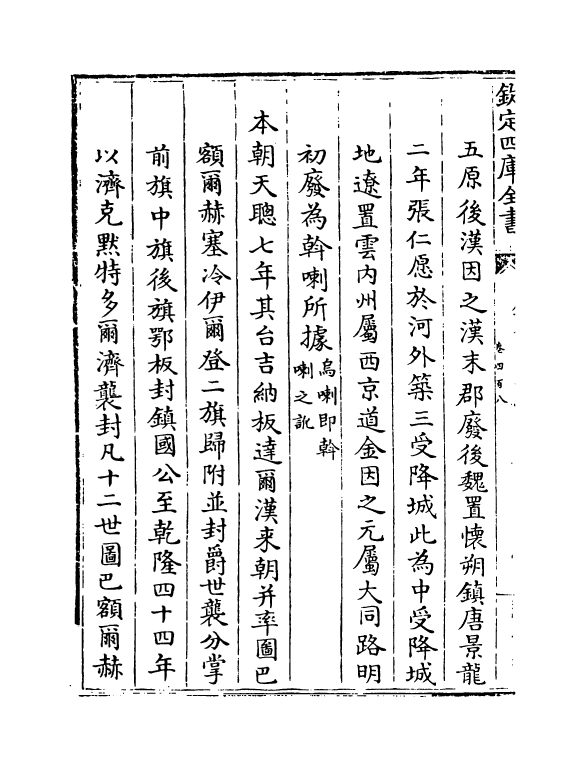 欽定四庫全書
卷四百八
五原後漢因之漢末郡廢後魏置懷朔鎮唐景龍
二年張仁愿於河外築三受降城此為中受降城
地遼置雲内州屬西京道金因之元屬大同路明
初廢為斡喇所據烏喇即斡
喇之訛
本朝天聰七年其台吉納板達爾漢来朝并率圖巴
額爾赫塞冷伊爾登二旗歸附並封爵世襲分掌
前旗中旗後旗鄂板封鎮國公至乾隆四十四年
以濟克黙特多爾濟襲封凡十二世圖巴額爾赫